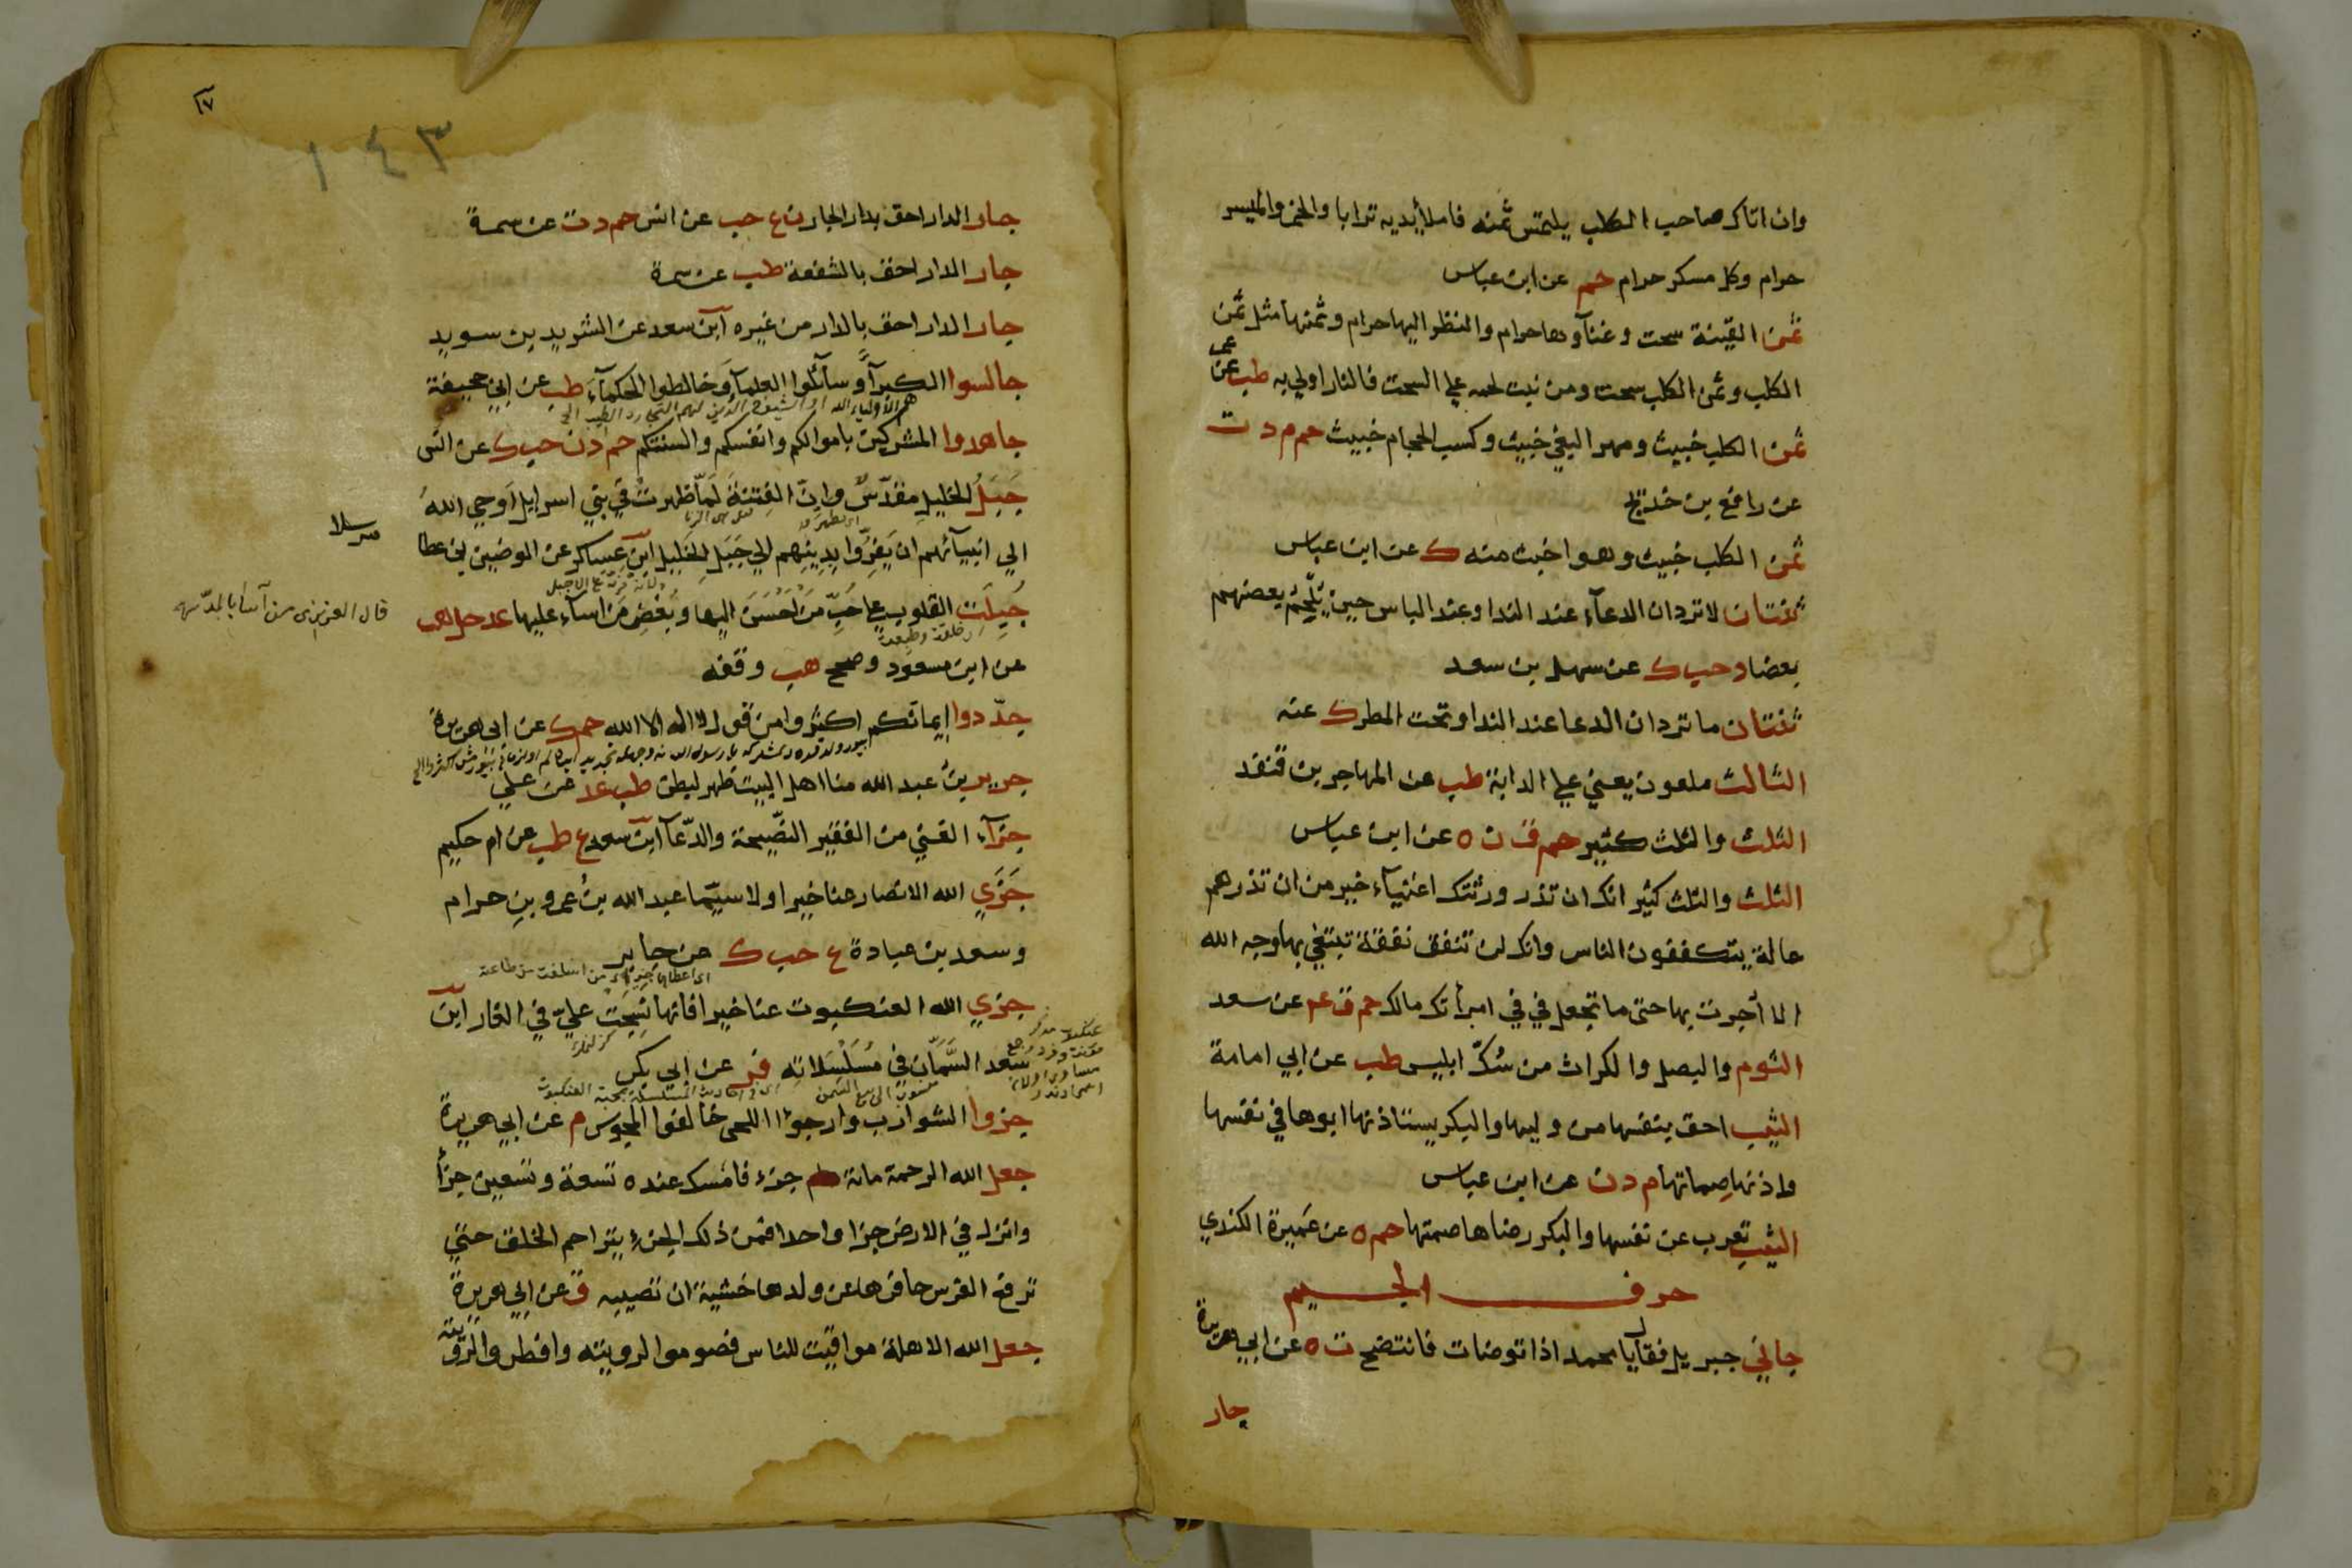 وان اتاك صاحب الكلب يلتمس ثمنه فاملأ يديه ترابا والخمر والميسر
حرام وكل مسكر حرام حم عن ابن عباس
ثمن القينة سحت وغناؤها حرام والنظر اليها حرام وثمنها مثل ثمن
الكلب وثمن الكلب سحت ومن نبت لحمه علي السحت فالنار اولي به طب عن عمر
ثمن الكلب خبيث ومهر البغي خبيث وكسب الحجام خبيث حم م د ت
عن رافع بن خديج
ثمن الكلب خبيث وهو اخبث منه ك عن ابن عباس
ثنتان لا تردان الدعاء عند الندا وعند الباس حين يلحم بعضهم
بعضا د حب ك عن سهل بن سعد
ثنتان ما تردان الدعا عند الندا وتحت المطر ك عنه
الثالث ملعون يعني علي الدابة طب عن المهاجر بن قنفد
الثلث والثلث كثير حم ق ن ه عن ابن عباس
الثلث والثلث كثير انك ان تذر ورثتك اغنياء خير من ان تذرهم
عالة يتكففون الناس وانك لن تنفق نفقة تبتغي بها وجه الله
الا أجرت بها حتى ما تجعل في في امرأتك مالك حم ق عم عن سعد
الثوم والبصل والكراث من سُكّ ابليس طب عن ابي امامة
الثيب احق بنفسها من وليها والبكر يستاذنها ابوها في نفسها
واذنها صماتها م د ن عن ابن عباس
الثيب تعرب عن نفسها والبكر رضاها صمتها حم ه عن عَميرة الكندي
حرف الجيم
جاني جبريل فقال يا محمد اذا توضات فانتضح ت ه عن ابي هريرة
جار
١٧
١٤٣
جار الدار احق بدار الجار ن ع حب عن انس حم د ت عن سمرة
جار الدار احق بالشفعة طب عن سمرة
جار الدار احق بالدار من غيره ابن سعد عن الشريد بن سويد
جالسوا الكبراء وسائلوا العلماء وخالطوا الحكماء طب عن ابي جحيفة
جاهدوا المشركين باموالكم وانفسكم والسنتكم حم د ن حب ك عن انس
جَبَلُ الخليلِ مقدّسٌ وانّ الفِتنةَ لَمّا ظهرت في بني اسرايل اوحي الله
مرسلا
الي انبيائهم ان يَفِرّوا بدينهم الي جَبَل الخليل ابن عساكر عن الوضين بن عطا
جُبِلَت القلوب علي حُبِّ مَن اَحْسَنَ اليها وبُغضِ مَن اساء عليها عد حل هب
خلقت وطبعت
عن ابن مسعود وصحح هب وقفه
جدّدوا إيمانكم اكثروا من قول لا اله الا الله حم ك عن ابي هريرة
جرير بنُ عبد الله منا اهل البيت ظهر لبطن طب عد عن علي
جزاء الغني من الفقير النّصيحة والدّعا ابن سعد ع طب عن ام حكيم
جَزَي الله الانصار عنا خيرا ولا سيّما عبد الله بنُ عمرو بنِ حرام
وسعد بن عبادة ع حب ك عن جابر
جزي الله العنكبوت عنا خيرا فانها نسجت عليّ في الغار ابن
سعد السَّمّان في مُسَلْسَلاتِه فر عن ابي بكر
جزوا الشوارب وارجوا اللحى خالفوا المجوس م عن ابي هريرة
جعل الله الرحمة مائة جزء فامسك عنده تسعة وتسعين جزأ
وانزل في الارض جزا واحدا فمن ذلك الجزء يتراحم الخلق حتي
ترفع الفرس حافرها عن ولدها خشية ان تصيبه ق عن ابي هريرة
جعل الله الاهلة مواقيت للناس فصوموا لرويته وافطروا لرؤيته